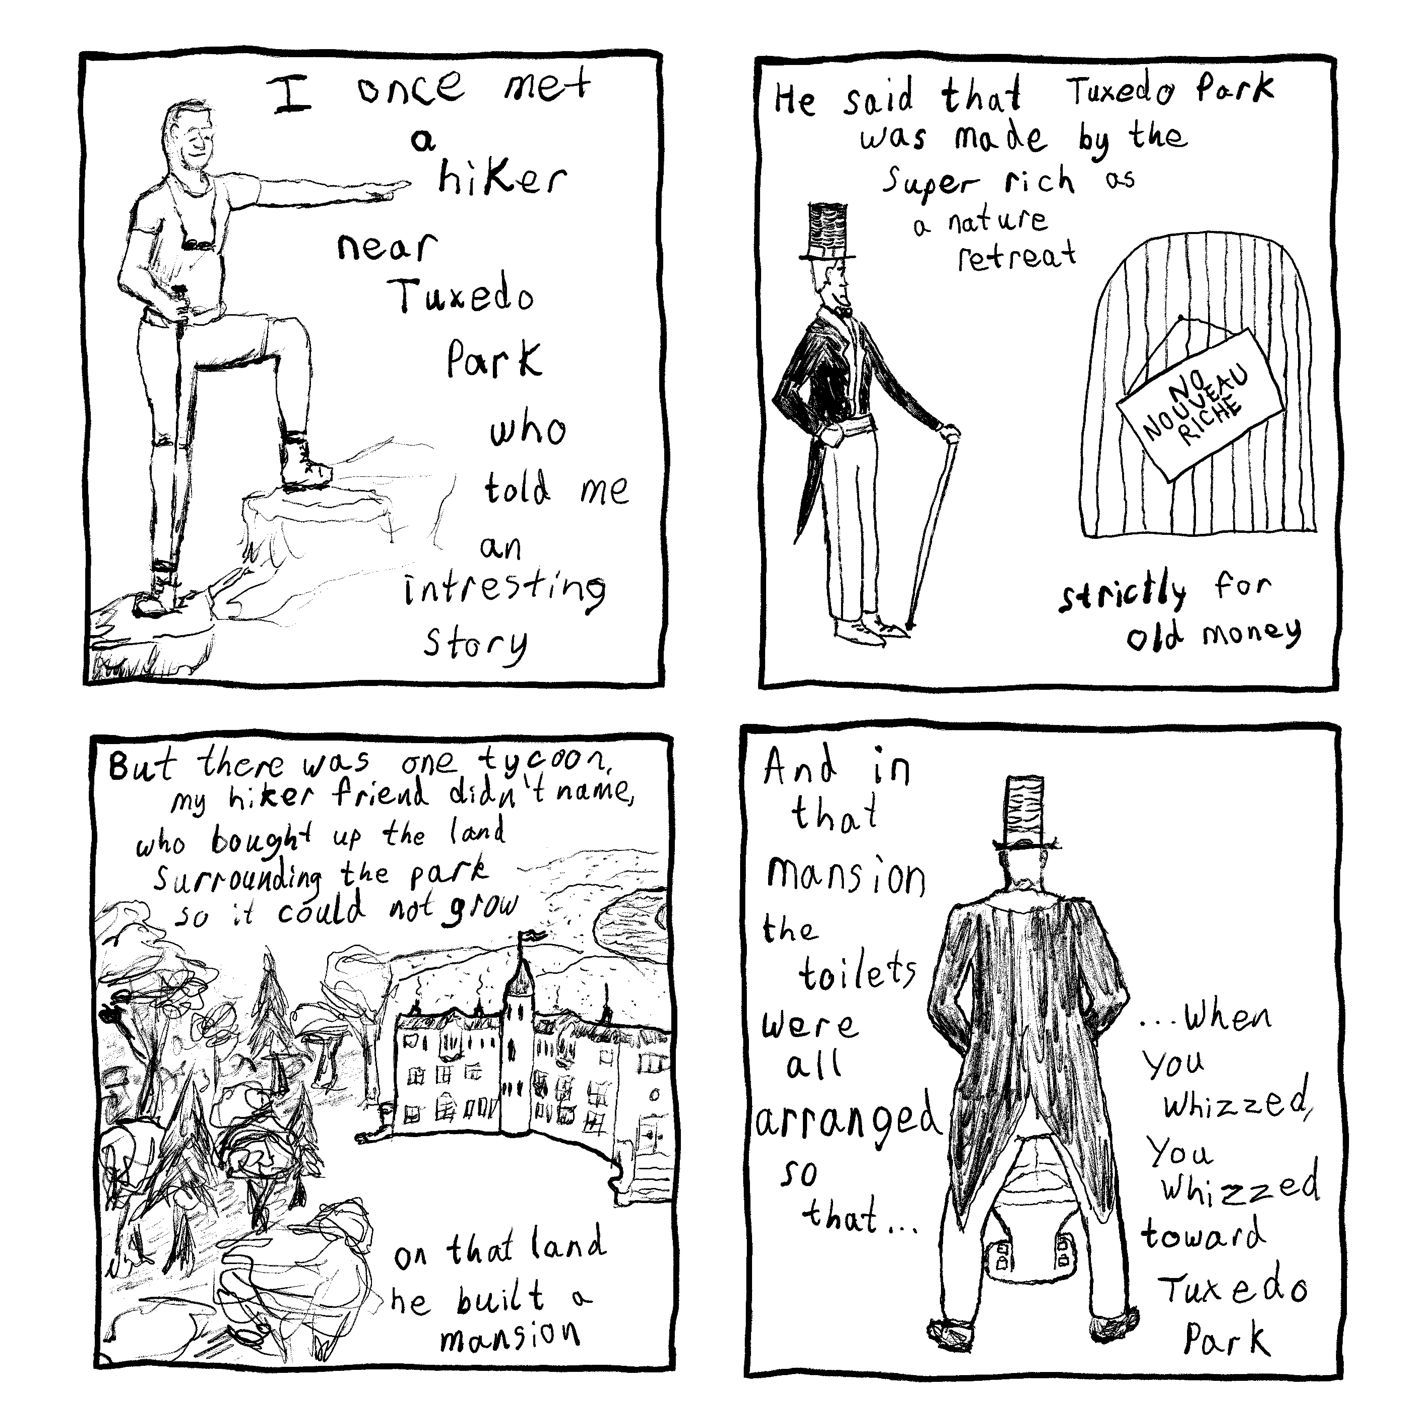 I once met
a
hiker
near
Tuxedo
Park
who
told me
an
intresting
story
He said that Tuxedo Park
was made by the
super rich as
a nature
retreat
NO
NOUVEAU
RICHE
strictly for
old money
But there was one tycoon,
my hiker friend didn't name,
who bought up the land
surrounding the park
so it could not grow
on that land
he built a
mansion
And in
that
mansion
the
toilets
were
all
arranged
so
that...
...when
you
whizzed,
you
whizzed
toward
Tuxedo
Park